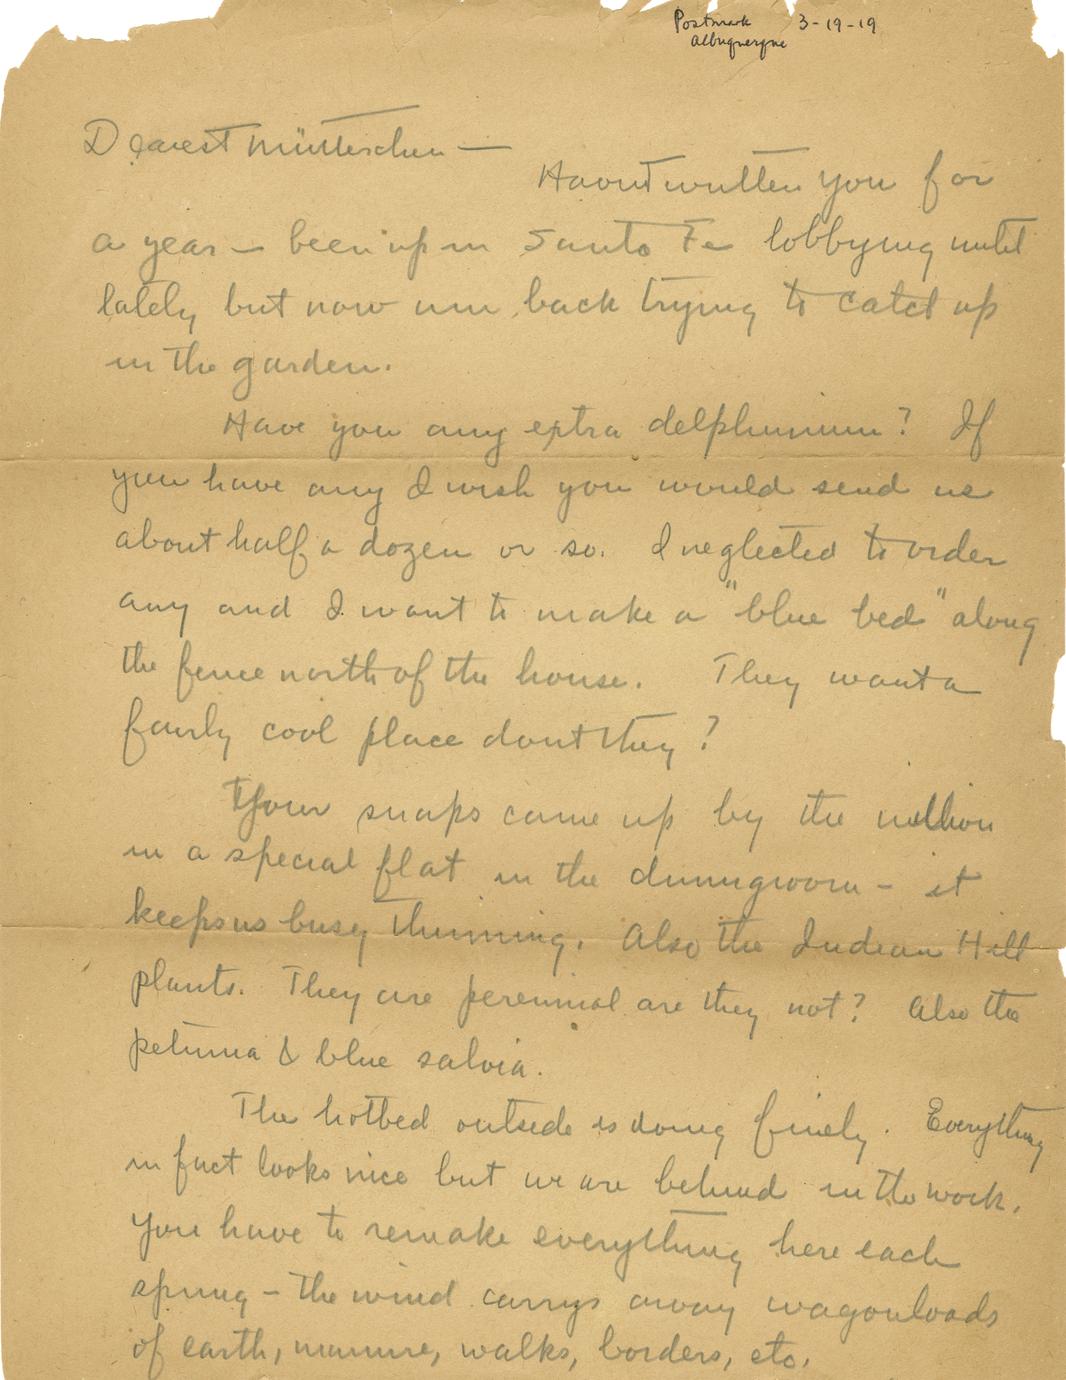 Postmark 3-19-19
Albuquerque
Dearest Mütterchen —
Havent written you for
a year — been up in Santa Fe lobbying until
lately but now am back trying to catch up
in the garden.
Have you any extra delphinium? If
you have any I wish you would send us
about half a dozen or so. I neglected to order
any and I want to make a "blue bed" along
the fence north of the house. They want a
fairly cool place dont they?
Your snaps came up by the million
in a special flat in the diningroom - it
keeps us busy thinning. Also the Indian Hill
plants. They are perennial are they not? Also the
petunia & blue salvia.
The hotbed outside is doing finely. Everything
in fact looks nice but we are behind in the work.
You have to remake everything here each
spring - the wind carrys away wagonloads
of earth, manure, walks, borders, etc.